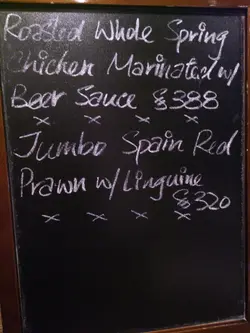 Roasted Whole Spring
Chicken Marinated w/
Beer Sauce $388
x x x x
Jumbo Spain Red
Prawn w/ Linguine
$320
x x x x